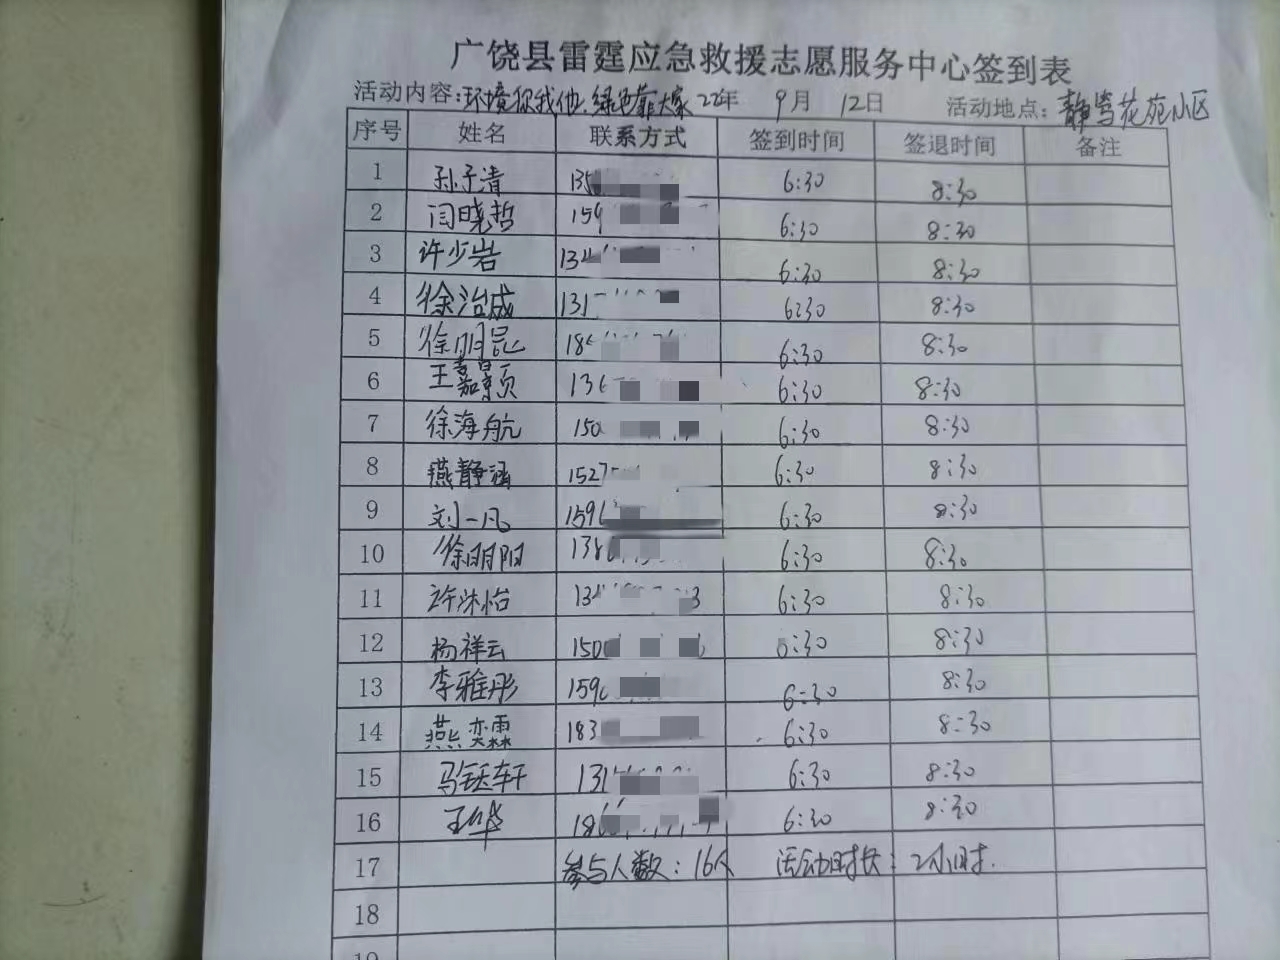 广饶县雷霆应急救援志愿服务中心签到表
活动内容:环境你我他,绿色靠大家 22年 9月 12日 活动地点:静雅花苑小区
序号 姓名 联系方式 签到时间 签退时间 备注
1 孙子清 135 6:30 8:30
2 闫晓哲 159 6:30 8:30
3 许少岩 134 6:30 8:30
4 徐治成 131 6:30 8:30
5 徐明昆 18 6:30 8:30
6 王嘉颢 136 6:30 8:30
7 徐海航 150 6:30 8:30
8 燕静涵 1527 6:30 8:30
9 刘一凡 159 6:30 8:30
10 徐明阳 138 6:30 8:30
11 许沐怡 134 3 6:30 8:30
12 杨祥云 150 6:30 8:30
13 李雅彤 159 6:30 8:30
14 燕奕霖 183 6:30 8:30
15 马钰轩 131 6:30 8:30
16 王华 186 6:30 8:30
17 参与人数:16人 活动时长:2小时.
18
19